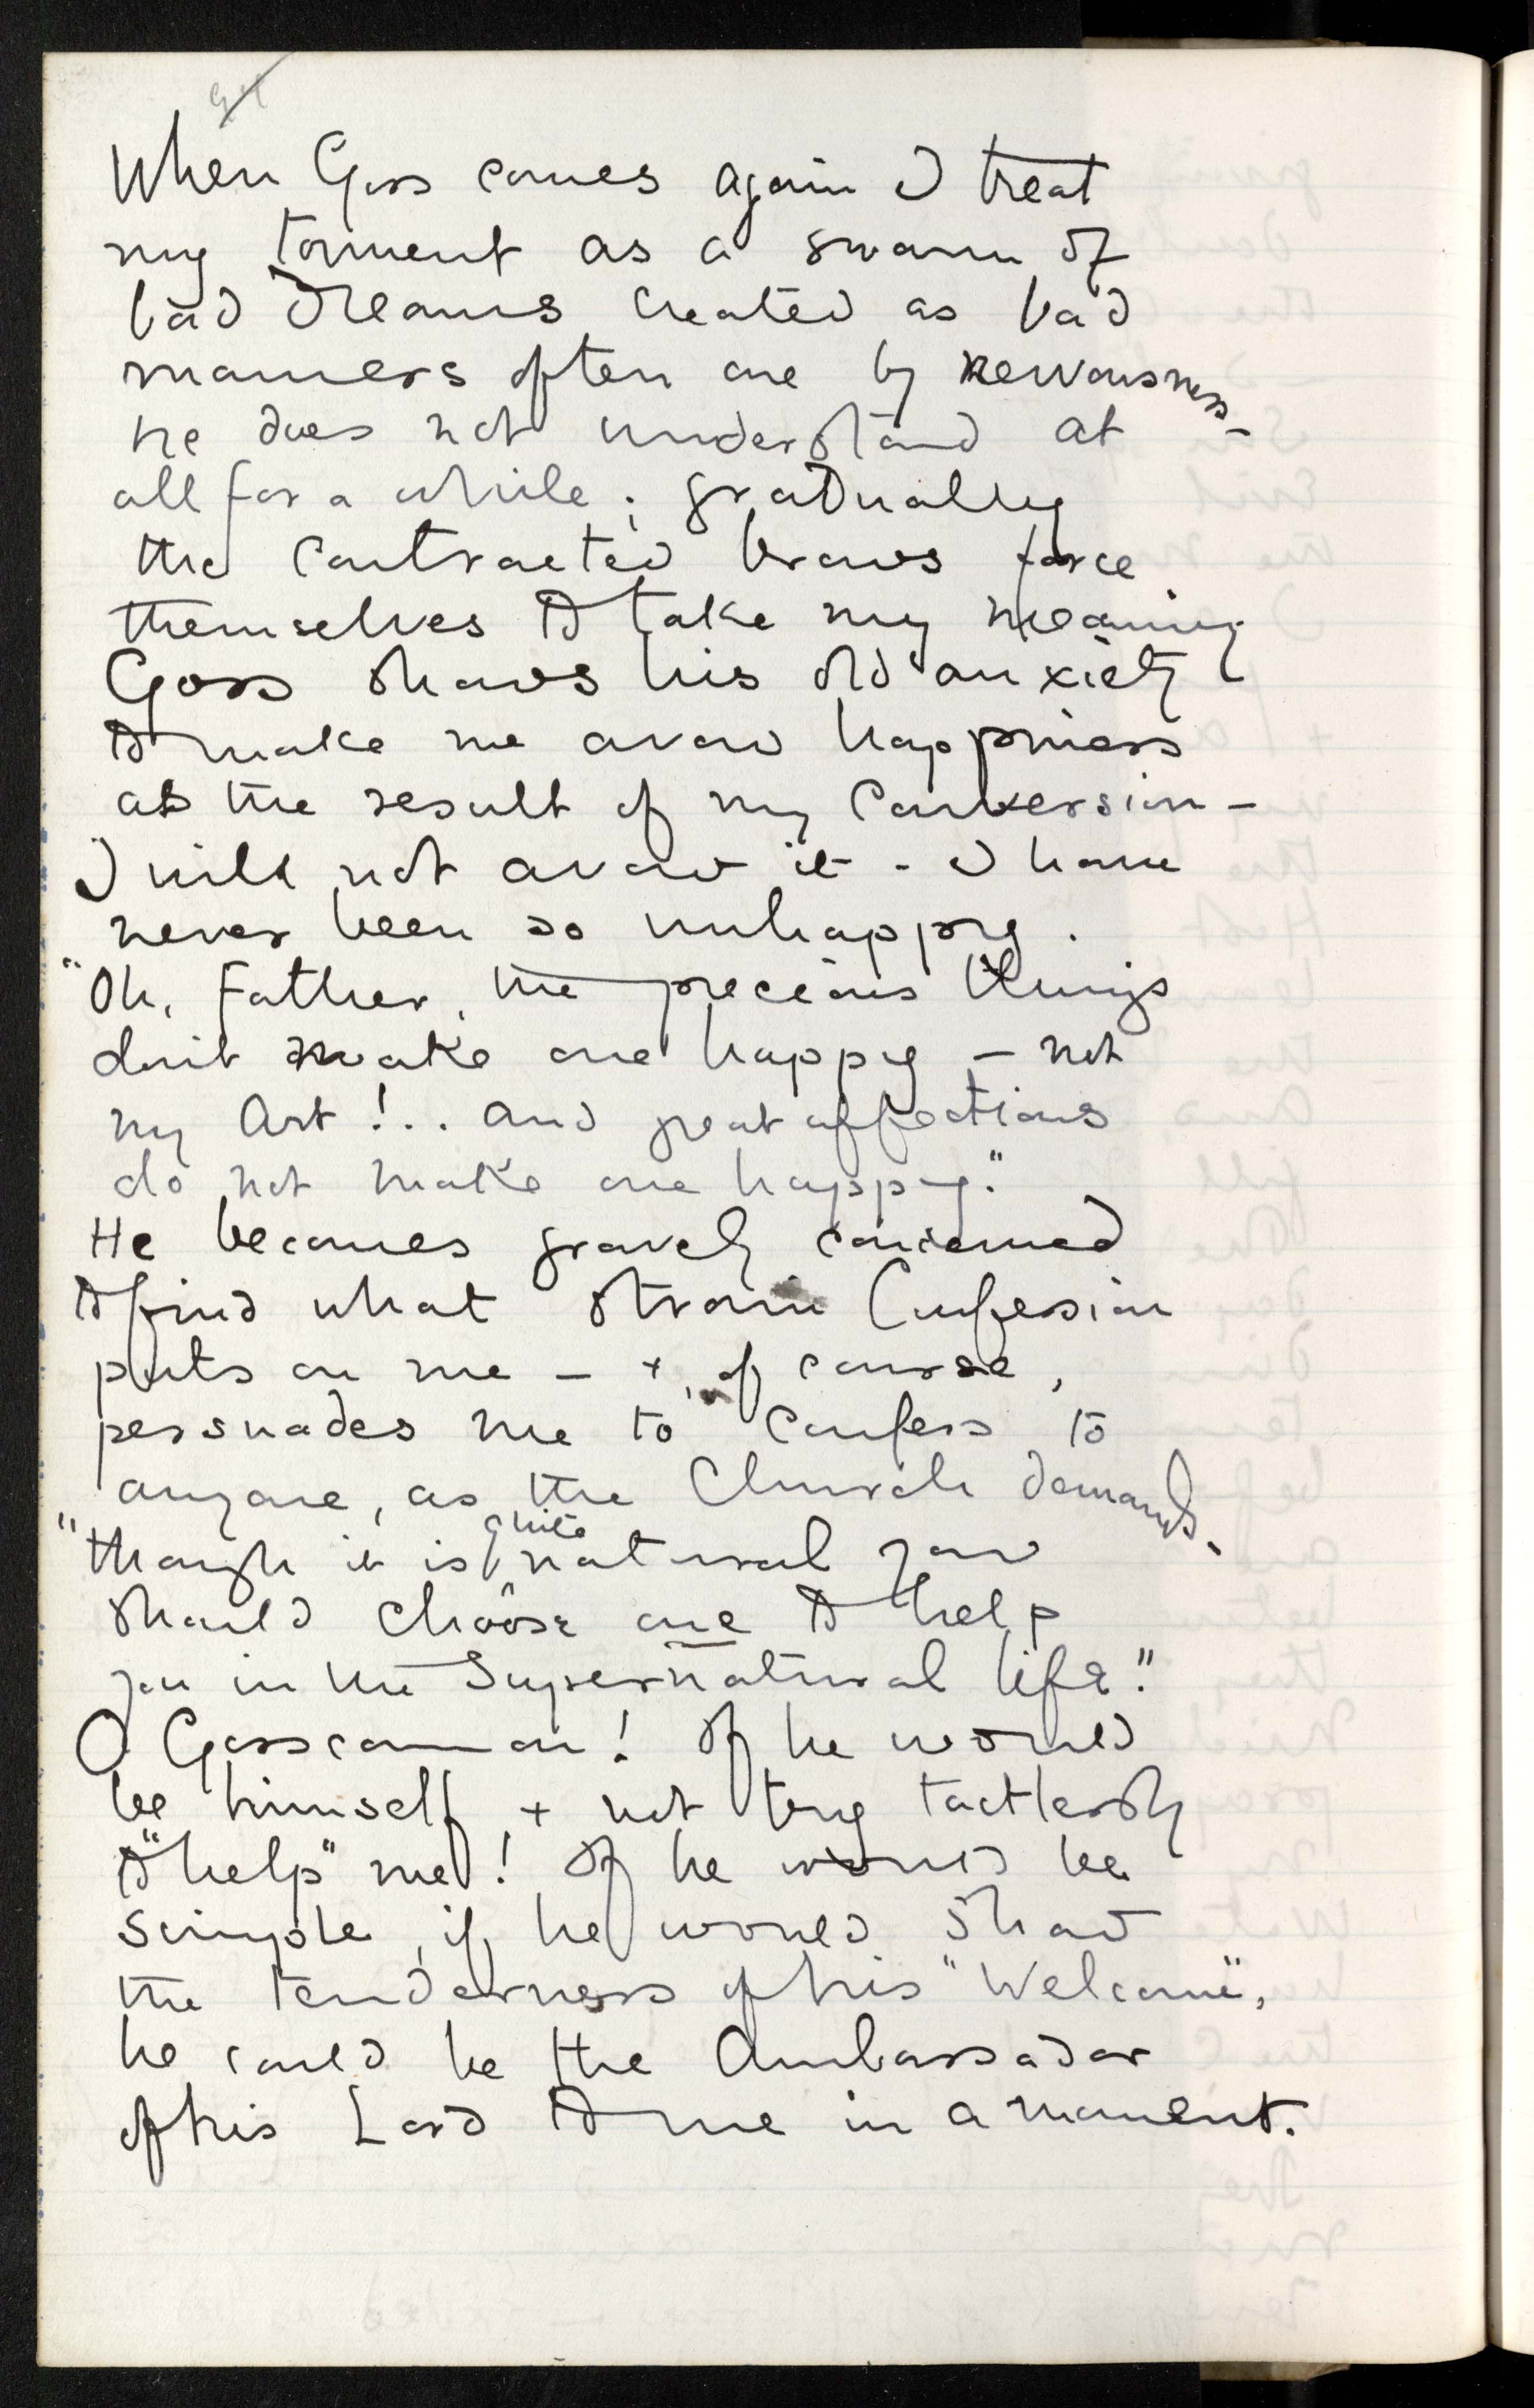 When Goss comes again I treat
my torment as a swarm of
bad dreams created as bad
manners often are by nervousness –
he does not understand at
all for a while; gradually
the contracted brows force
themselves to take my meaning
Goss shows his old anxiety
to make me avow happiness
as the result of my Conversion –
I will not avow it – I have
never been so unhappy.
"Oh, Father, the precious things
don't make one happy – not
my Art!.. and great affections
do not make one happy."
He becomes gravely concerned
to find what strain Confession
puts on me – +, of course,
persuades me to confess to
anyone, as the Church demands,
"though it is quite natural you
should choose one to help
you in the Supernatural life."
O Gosscannon! If he would
be himself, + not try tactlessly
to "help" me! If he would be
simple, if he would show
the tenderness of his "Welcome",
he could be the Ambassador
of his Lord to me in a moment.